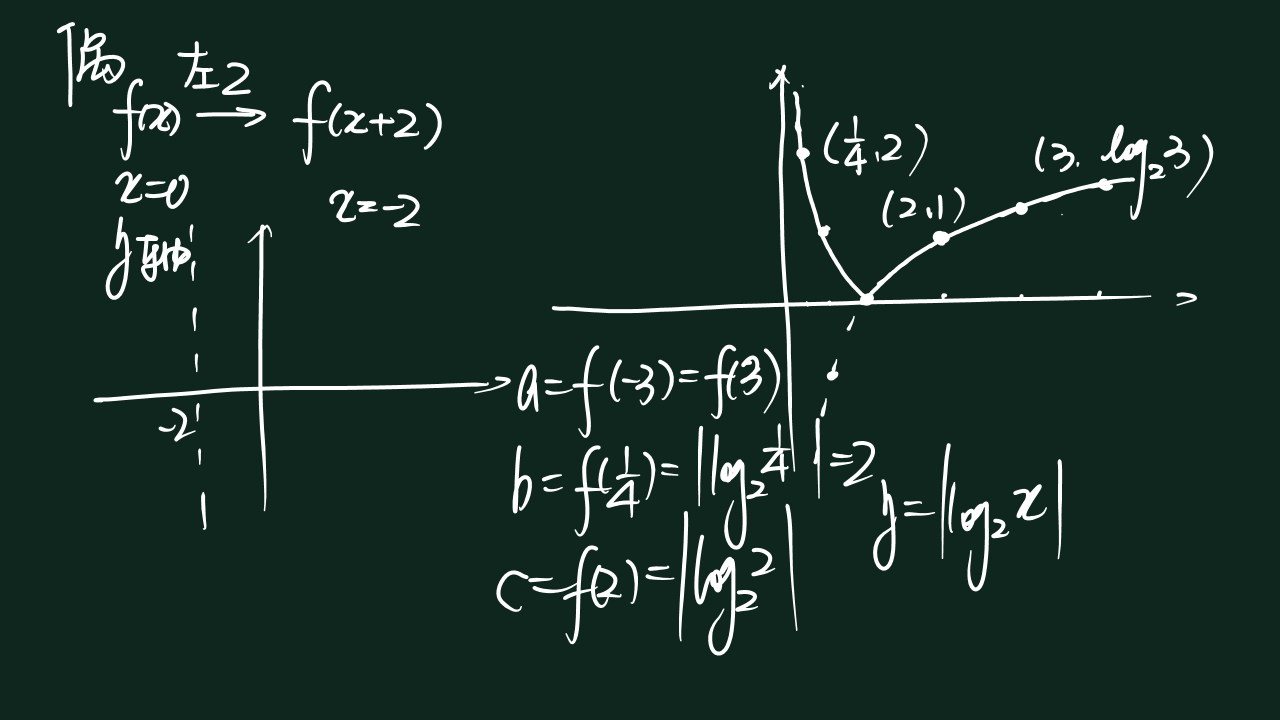 偶
左2
f(x) → f(x+2)
x=0
x=-2
y轴
-2
(1/4,2)
(2,1)
(3, log₂3)
a=f(-3)=f(3)
b=f(1/4)=|log₂1/4|=2
c=f(2)=|log₂2|
y=|log₂x|